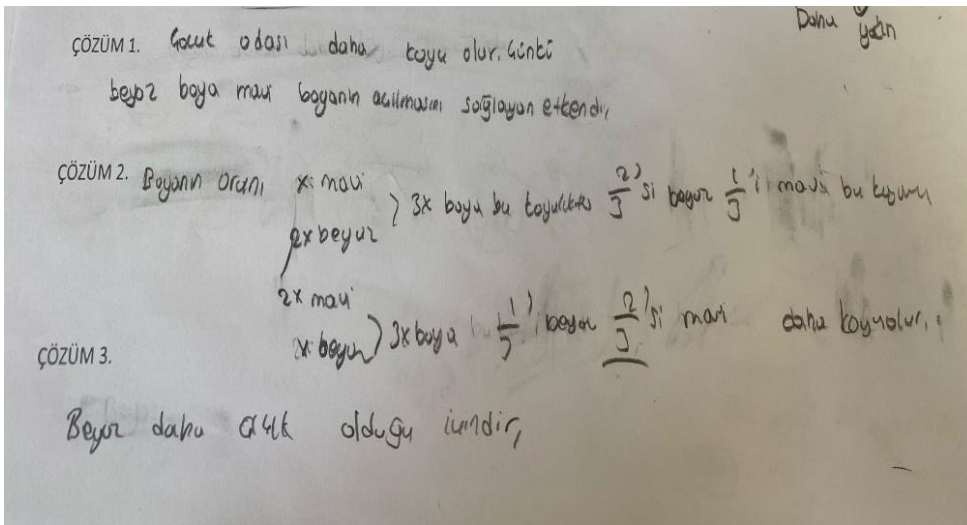 Daha
yakın
ÇÖZÜM 1. Çocuk odası daha koyu olur. Çünkü
beyaz boya mavi boyanın açılmasını sağlayan etkendir,
ÇÖZÜM 2. Boyanın oranı x mavi
2x beyaz
3x boya bu koyulukta 2/3'si beyaz 1/3'i mavi bu kısmı
2x mavi
x beyaz
3x boya 1/3'i beyaz 2/3'si mavi daha koyu olur.
ÇÖZÜM 3.
Beyaz daha açık olduğu içindir,